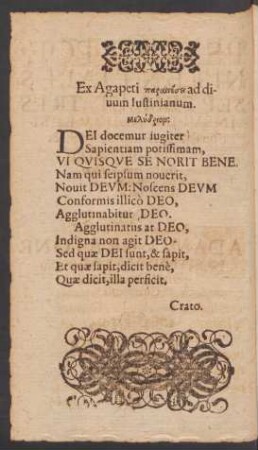 Ex Agapeti παραινέσει ad di-
uum Iustinianum.
μελύδριον:
DEI docemur iugiter
Sapientiam potissimam,
VI QVISQVE SE NORIT BENE.
Nam qui seipsum nouerit,
Nouit DEVM: Noscens DEVM
Conformis illicò DEO,
Agglutinabitur DEO.
Agglutinatus at DEO,
Indigna non agit DEO.
Sed quæ DEI sunt, & sapit,
Et quæ sapit, dicit benè,
Quæ dicit, illa perficit.
Crato.